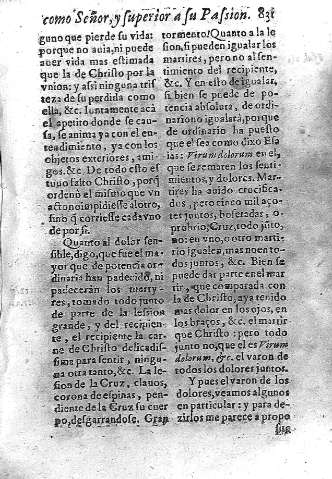 como Señor, y superior a su Passion. 831
guno que pierde su vida:
porque no auia, ni puede
auer vida mas estimada
que la de Christo por la
vnion: y assi ninguna tris
teza de su perdida como
ella, &c. Iuntamente acà
el apetito donde se cau-
sa, se anima ya con el en-
tendimiento, ya con los
objetos exteriores, ami-
gos, &c. De todo esto es
tuuo falto Christo, porq̃
ordenò el mismo que vn
acto no impidiesse al otro,
sino q̃ corriesse cada vno
de por si.
Quanto al dolor sen-
sible, digo, que fue el ma-
yor que de potencia or-
dinaria han padecido, ni
padeceràn los marty-
res, tomado todo junto
de parte de la lession
grande, y del recipiente
, el recipiente la car-
ne de Christo delicadis-
sima para sentir, ningu-
na otra tanto, &c. La le-
sion de la Cruz, clauos,
corona de espinas, pen-
diente de la Cruz su cuer
po, desgarrandose. Gran
tormento! Quanto a la le
sion, si pueden igualar los
martires, pero no al sen-
timiento del recipiente,
&c. Y en esto de igualar,
si bien se puede de po-
tencia absoluta, de ordi-
nario no igualarà, porque
de ordinario ha puesto
que el sea como dixo Esa
ias: Virum dolorum en el,
que se rematen los senti-
mientos, y dolores. Mar-
tires ha auido crucifica-
dos, pero cinco mil aço-
tes juntos, bofetadas, o
probrio, Cruz, todo jūto,
no: en vno, o otro marti-
rio igualen, mas no en to-
dos juntos, &c. Bien se
puede dar parte en el mar
tir, que comparada con
la de Christo, aya tenido
mas dolor en los ojos, en
los braços, &c. el martir
que Christo: pero todo
junto no, que el es Virum
dolorum, &c. el varon de
todos los dolores juntos.
Y pues el varon de los
dolores, veamos algunos
en particular: y para de-
zirlos me parece a propo